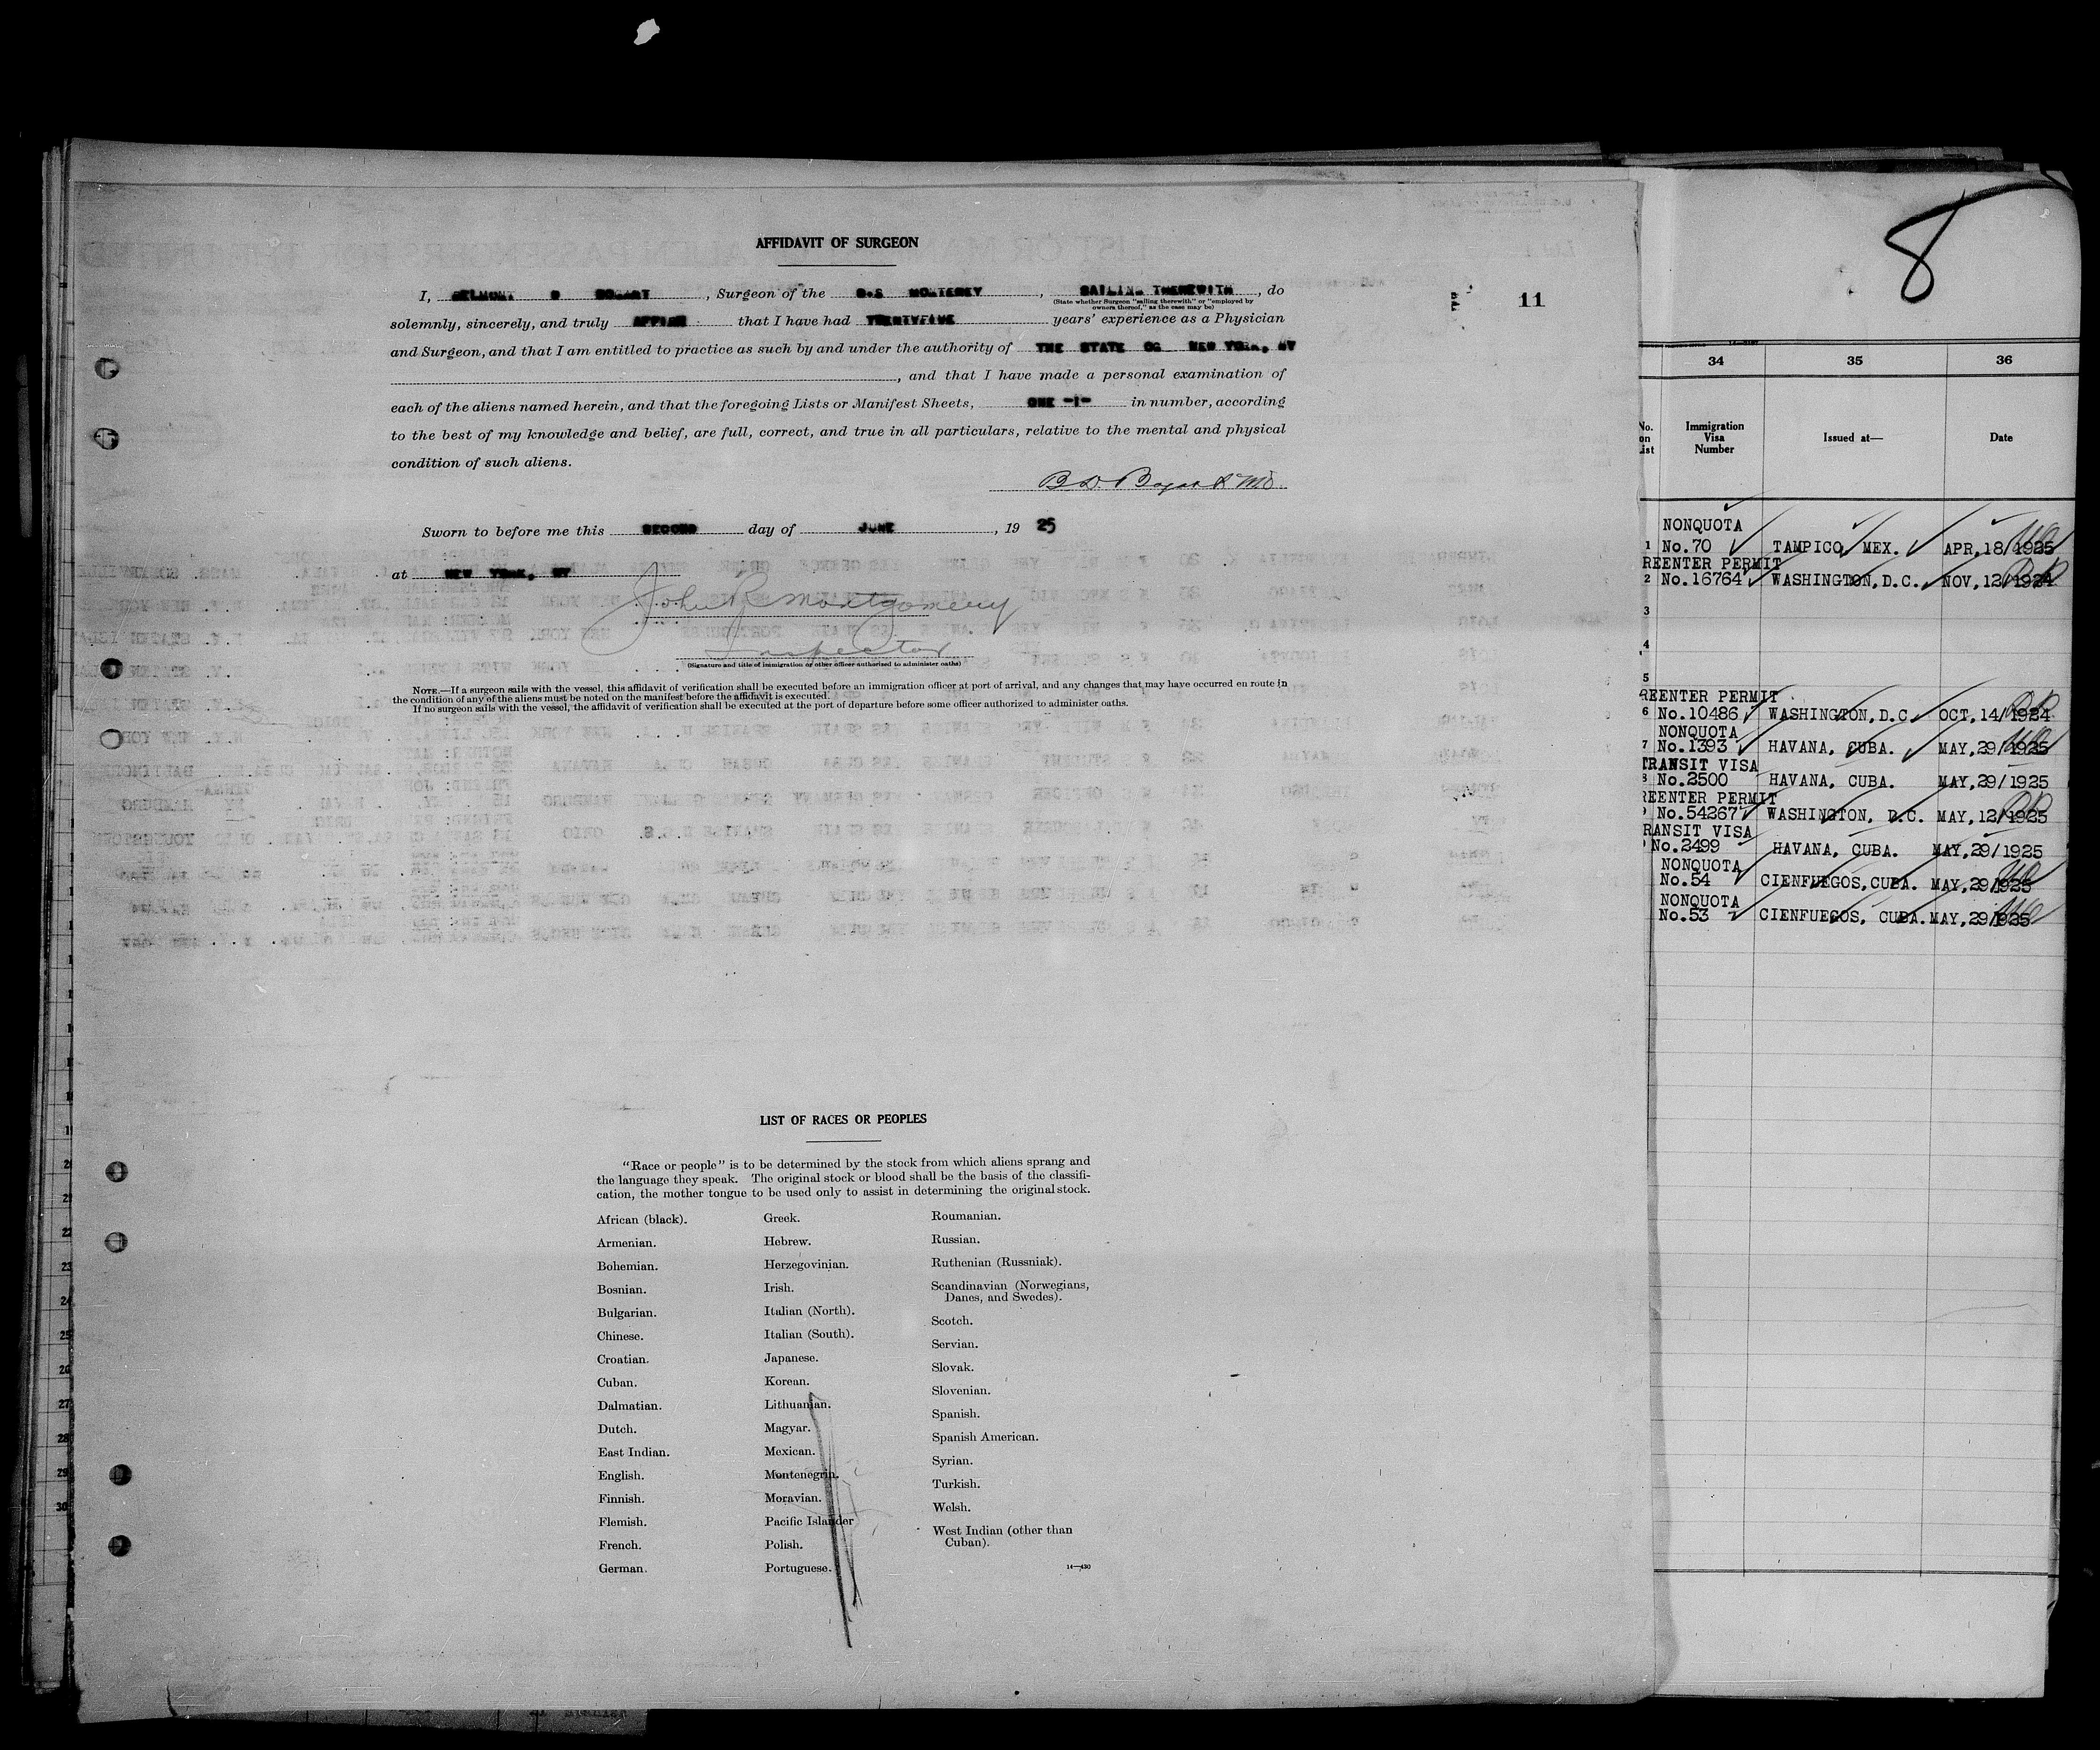 8
AFFIDAVIT OF SURGEON
I, BELMONT D BOGART, Surgeon of the S.S MONTEREY, SAILING THEREWITH, do
(State whether Surgeon "sailing therewith" or "employed by
owners thereof," as the case may be)
11
solemnly, sincerely, and truly AFFIRM that I have had TWENTYFIVE years' experience as a Physician
and Surgeon, and that I am entitled to practice as such by and under the authority of THE STATE OG NEW YORK, NY
, and that I have made a personal examination of
each of the aliens named herein, and that the foregoing Lists or Manifest Sheets, ONE -1- in number, according
to the best of my knowledge and belief, are full, correct, and true in all particulars, relative to the mental and physical
condition of such aliens.
B.D. Bogart MD.
Sworn to before me this SECOND day of JUNE, 19 25
at NEW YORK, NY
John R Montgomery
Inspector
(Signature and title of immigration or other officer authorized to administer oaths)
NOTE.—If a surgeon sails with the vessel, this affidavit of verification shall be executed before an immigration officer at port of arrival, and any changes that may have occurred en route in
the condition of any of the aliens must be noted on the manifest before the affidavit is executed.
If no surgeon sails with the vessel, the affidavit of verification shall be executed at the port of departure before some officer authorized to administer oaths.
LIST OF RACES OR PEOPLES
"Race or people" is to be determined by the stock from which aliens sprang and
the language they speak. The original stock or blood shall be the basis of the classifi-
cation, the mother tongue to be used only to assist in determining the original stock.
African (black).
Armenian.
Bohemian.
Bosnian.
Bulgarian.
Chinese.
Croatian.
Cuban.
Dalmatian.
Dutch.
East Indian.
English.
Finnish.
Flemish.
French.
German.
Greek.
Hebrew.
Herzegovinian.
Irish.
Italian (North).
Italian (South).
Japanese.
Korean.
Lithuanian.
Magyar.
Mexican.
Montenegrin.
Moravian.
Pacific Islander
Polish.
Portuguese.
Roumanian.
Russian.
Ruthenian (Russniak).
Scandinavian (Norwegians,
Danes, and Swedes).
Scotch.
Servian.
Slovak.
Slovenian.
Spanish.
Spanish American.
Syrian.
Turkish.
Welsh.
West Indian (other than
Cuban).
14—430
34 35 36
No. on List Immigration Visa Number Issued at— Date
NONQUOTA
1 No.70 TAMPICO, MEX. APR,18/1925
REENTER PERMIT
2 No.16764 WASHINGTON,D.C. NOV,12/1924
3
4
5
REENTER PERMIT
6 No.10486 WASHINGTON,D.C. OCT,14/1924
NONQUOTA
7 No.1393 HAVANA, CUBA. MAY,29/1925
TRANSIT VISA
8 No.2500 HAVANA, CUBA. MAY,29/1925
REENTER PERMIT
No.54267 WASHINGTON, D.C. MAY,12/1925
RANSIT VISA
No.2499 HAVANA, CUBA. MAY,29/1925
NONQUOTA
No.54 CIENFUEGOS,CUBA. MAY,29/1925
NONQUOTA
No.53 CIENFUEGOS, CUBA. MAY,29/1925